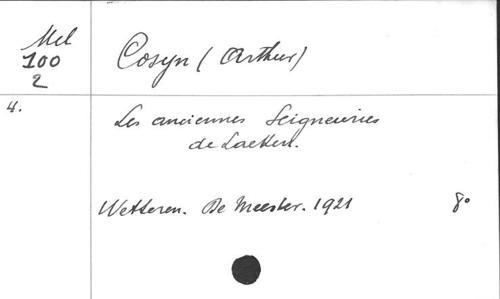 Mel
100
2
Cosyn (Arthur)
4.
Les anciennes Seigneuries
de Laeken.
Wetteren. De Meester. 1921 8°